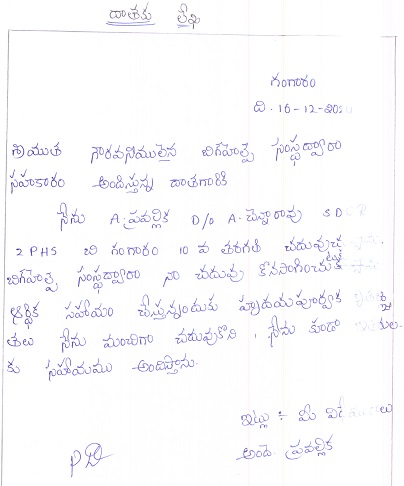 దాతకు లేఖ
గంగారం
ది. 16-12-20
శ్రీయుత గౌరవనీయులైన బిగ్‌హెల్ప్ సంస్థద్వారా
సహకారం అందిస్తున్న దాతగారికి
నేను A. ప్రవల్లిక D/o A. చెన్నారావు S D
2 PHS బి గంగారం 10 వ తరగతి చదువుచు
బిగ్‌హెల్ప్ సంస్థద్వారా నా చదువు కొనసాగించుటకు
ఆర్థిక సహాయం చేస్తున్నందుకు హృదయపూర్వక
తలు నేను మంచిగా చదువుకొని, నేను కూడా
కు సహాయము అందిస్తాను.
ఇట్లు :- మీ
అందె. ప్రవల్లిక